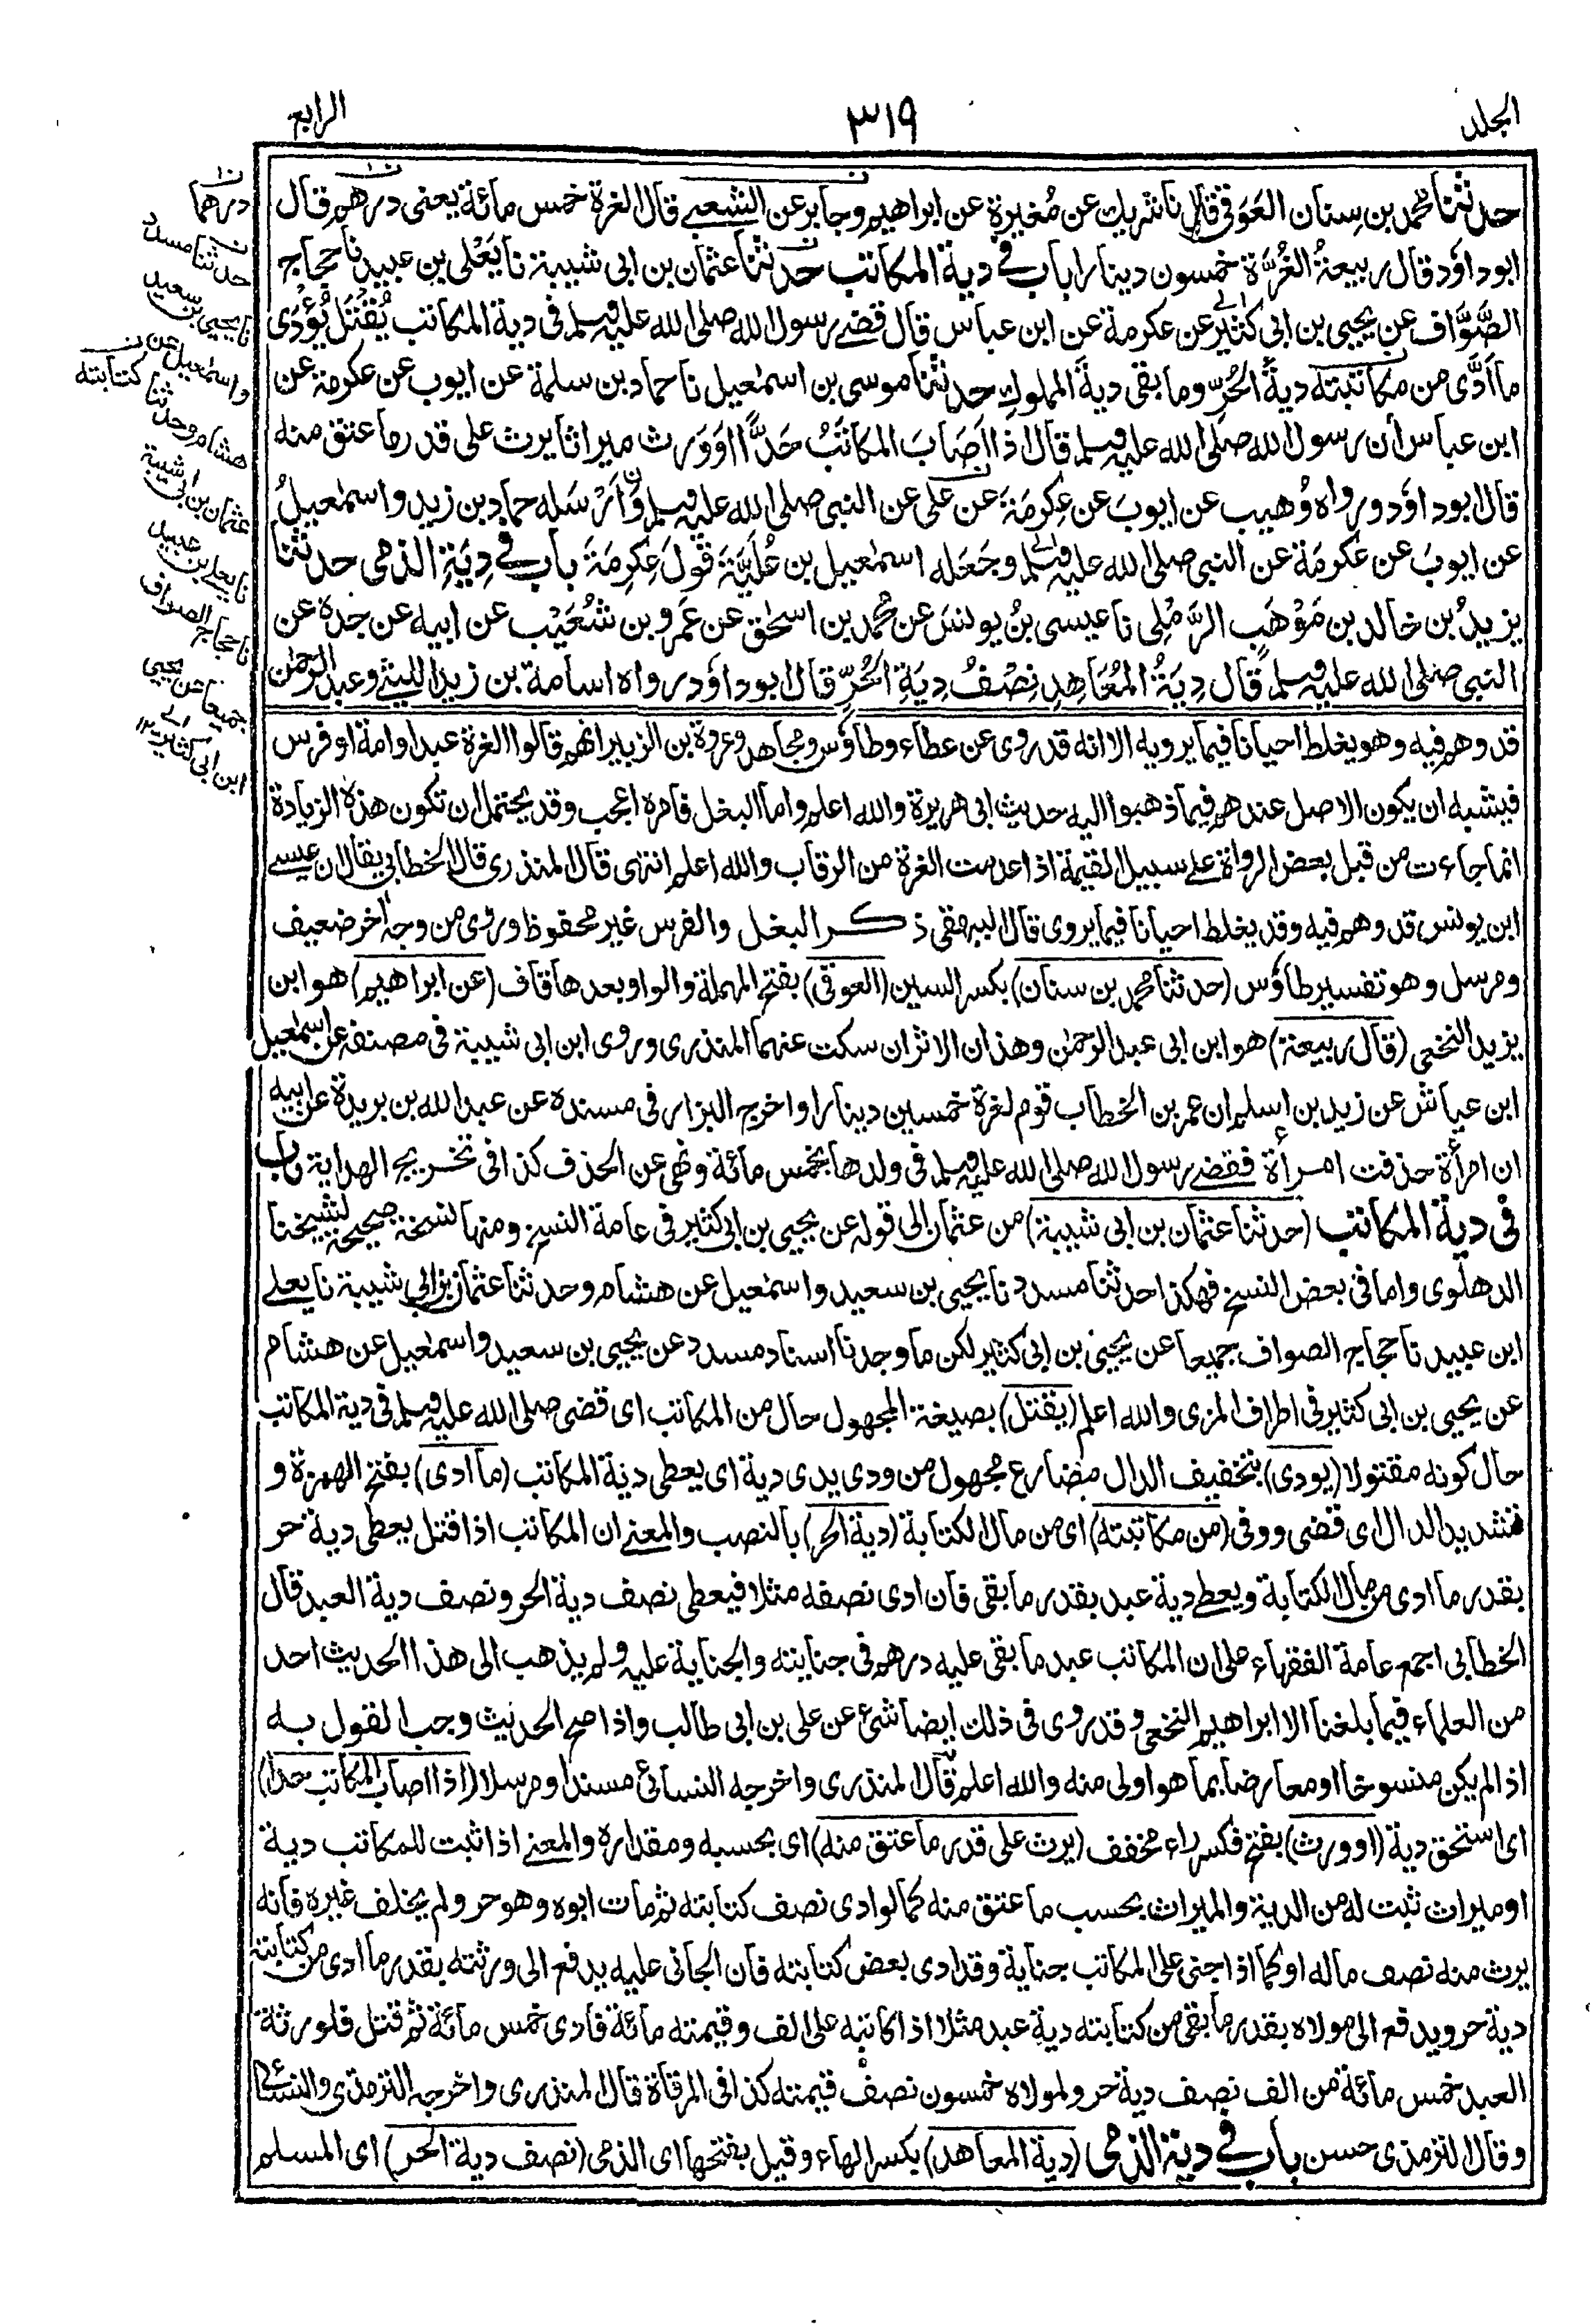 المجلد
٣١٩
الرابع
حدثنا محمد بن سنان العَوَقي قال نا شريك عن مُغيرة عن ابراهيم وجابر عن الشعبي قال الغرة خمس مائة يعنى درهم قال
ابو داؤد قال ربيعةُ الغُرَّة خمسون دينارا باب في دية المكاتب حدثنا عثمان بن ابى شيبة نا يَعْلى بن عبيد نا حجاج
الصَّوَّاف عن يحيى بن ابى كثير عن عكرمة عن ابن عباس قال قضى رسول الله صلى الله عليه وسلم فى دية المكاتب يُقْتَل يُؤْدَى
ما اَدَّى من مكاتبته ديةَ الحُرِّ وما بقى ديةَ المملوكِ حدثنا موسى بن اسمٰعيل نا حماد بن سلمة عن ايوب عن عكرمة عن
ابن عباس أن رسول الله صلى الله عليه وسلم قال اذا اَصَابَ المكاتَبُ حَدًّا اَوْ وَرِث ميراثا يرث على قدر ما عتق منه
قال ابو داؤد ورواه وُهيب عن ايوبَ عن عِكرمَةَ عن على عن النبى صلى الله عليه وسلم وَاَرْسَله حماد بن زيد واسمٰعيلُ
عن ايوبَ عن عكرمَة عن النبى صلى الله عليه وسلم وجَعَله اسمٰعيل بن عُلَيَّةَ قَولَ عِكرِمَةَ باب في دِيَةِ الذمى حدثنا
يزيدُ بن خالد بن مَوْهَبٍ الرَّمْلِى نا عيسى بنُ يونسَ عن محمد بن اسحٰق عن عَمرو بن شُعَيْب عن ابيه عن جده عن
النبى صلى الله عليه وسلم قال دِيَةُ المُعَاهِدِ نِصْفُ دِيَةِ الحُرِّ قال ابو داؤد رواه اسامة بن زيد الليثى وعبد الرحمٰن
قد وهم فيه وهو يغلط احيانا فيما يرويه الا انه قد روى عن عطاء وطاؤس ومجاهد وعروة بن الزبير انهم قالوا الغرة عبد او امة او فرس
فيشبه ان يكون الاصل عندهم فيما ذهبوا اليه حديث ابى هريرة والله اعلم واما البغل فامره اعجب وقد يحتمل ان تكون هذه الزيادة
انما جاءت من قبل بعض الرواة على سبيل القيمة اذا عدمت الغرة من الرقاب والله اعلم انتهى قال المنذرى قال الخطابى يقال ان عيسى
ابن يونس قد وهم فيه وقد يغلط احيانا فيما يروى قال البيهقى ذكر البغل والفرس غير محفوظ وروى من وجه اٰخر ضعيف
ومرسل وهو تفسير طاؤس (حدثنا محمد بن سنان) بكسر السين (العوقى) بفتح المهملة والواو بعدها قاف (عن ابراهيم) هو ابن
يزيد النخعى (قال ربيعة) هو ابن ابى عبد الرحمٰن وهذان الاثران سكت عنهما المنذرى وروى ابن ابى شيبة فى مصنفه عن اسمٰعيل
ابن عياش عن زيد بن اسلم ان عمر بن الخطاب قوم لغرة خمسين دينارا واخرجه البزار فى مسنده عن عبد الله بن بريدة عن ابيه
ان امرأة حذفت امرأة فقضى رسول الله صلى الله عليه وسلم فى ولدها بخمس مائة ونهى عن الحذف كذا فى تخريج الهداية باب
فى دية المكاتب (حدثنا عثمان بن ابى شيبة) من عثمان الى قوله عن يحيى بن ابى كثير فى عامة النسخ ومنها نسخة صحيحة لشيخنا
الدهلوى واما فى بعض النسخ فهكذا حدثنا مسدد نا يحيى بن سعيد واسمٰعيل عن هشام وحدثنا عثمان بن ابى شيبة نا يعلى
ابن عبيد نا حجاج الصواف جميعا عن يحيى بن ابى كثير لكن ما وجدنا اسناد مسدد عن يحيى بن سعيد واسمٰعيل عن هشام
عن يحيى بن ابى كثير فى اطراف المزى والله اعلم (يقتل) بصيغة المجهول حال من المكاتب اى قضى صلى الله عليه وسلم فى دية المكاتب
حال كونه مقتولا (يودى) بتخفيف الدال مضارع مجهول من ودى يدى دية اى يعطى دية المكاتب (ما ادى) بفتح الهمزة و
تشديد الدال اى قضى ووفى (من مكاتبته) اى من مال الكتابة (دية الحر) بالنصب والمعنى ان المكاتب اذا قتل يعطى دية حر
بقدر ما ادى من مال الكتابة ويعطى دية عبد بقدر ما بقى فان ادى نصفه مثلا فيعطى نصف دية الحر ونصف دية العبد قال
الخطابى اجمع عامة الفقهاء على ان المكاتب عبد ما بقى عليه درهم فى جنايته والجناية عليه ولم يذهب الى هذا الحديث احد
من العلماء فيما بلغنا الا ابراهيم النخعى وقد روى فى ذلك ايضا شئ عن على بن ابى طالب واذا صح الحديث وجب القول به
اذا لم يكن منسوخا او معارضا بما هو اولى منه والله اعلم قال المنذرى واخرجه النسائى مسندا ومرسلا (اذا اصاب المكاتب حدا)
اى استحق دية (او ورث) بفتح فكسر راء مخفف (يرث على قدر ما عتق منه) اى بحسبه ومقداره والمعنى اذا ثبت للمكاتب دية
او ميراث ثبت له من الدية والميراث بحسب ما عتق منه كما لو ادى نصف كتابته ثم مات ابوه وهو حر ولم يخلف غيره فانه
يرث منه نصف ماله او كما اذا جنى على المكاتب جناية وقد ادى بعض كتابته فان الجانى عليه يدفع الى ورثته بقدر ما ادى من كتابته
دية حر ويدفع الى مولاه بقدر ما بقى من كتابته دية عبد مثلا اذا كاتبه على الف وقيمته مائة فادى خمس مائة ثم قتل فلورثة
العبد خمس مائة من الف نصف دية حر ولمولاه خمسون نصف قيمته كذا فى المرقاة قال المنذرى واخرجه الترمذى والنسائى
وقال الترمذى حسن باب في دية الذمى (دية المعاهد) بكسر الهاء وقيل بفتحها اى الذمى (نصف دية الحر) اى المسلم
درهما
حدثنا مسدد
نا يحيى بن سعيد
واسمٰعيل عن
كتابته
هشام وحدثنا
عثمان بن ابى شيبة
نا يعلى بن عبيد
نا حجاج الصواف
جميعا عن يحيى
ابن ابى كثير ١٢